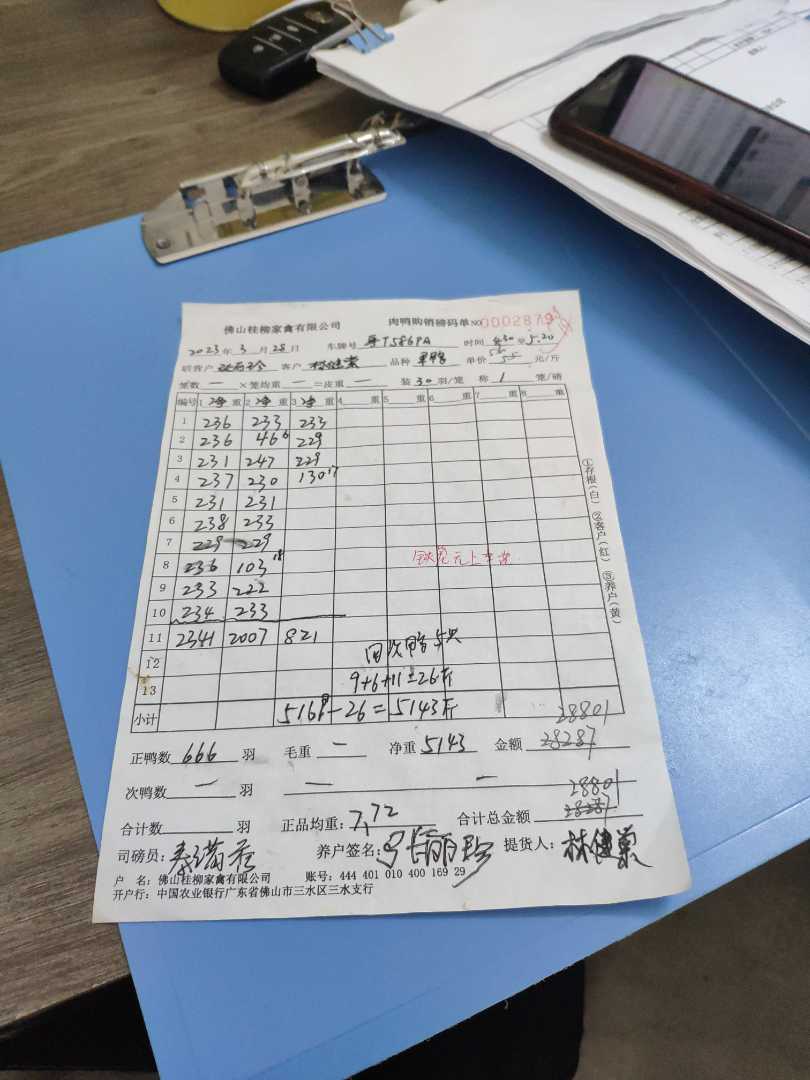 佛山桂柳家禽有限公司 肉鸭购销磅码单 NO 0002879
2023年 3月28日 车牌号 粤T5869A 时间 4:30 至 5.20
客户 林健棠 品种 单价 5.6 5.5 元/斤
笼数 一 ×笼均重 一 =皮重 一 装 30 羽/笼 称 1 笼/磅
编号 1 净 重 2 净 重 3 净 重 4 重 5 重 6 重 7 重 8 重
1 236 233 233
2 236 46 6 229
3 231 247 229
4 237 230 130 17
5 231 231
6 238 233
7 229 229
8 236 103 18
9 233 222
10 234 233
11 2341 2007 821
12
13 9+6+11=26斤
小计 5169-26=5143斤 28801
正鸭数 666 羽 毛重 一 净重 5143 金额 28287
次鸭数 一 羽 一 一 28801
合计数 羽 正品均重: 7.72 合计总金额 28287
司磅员: 养户签名: 提货人: 林健棠
户 名: 佛山桂柳家禽有限公司 账号: 444 401 010 400 169 29
开户行: 中国农业银行广东省佛山市三水区三水支行
①存根(白) ②客户(红) ③养户(黄)